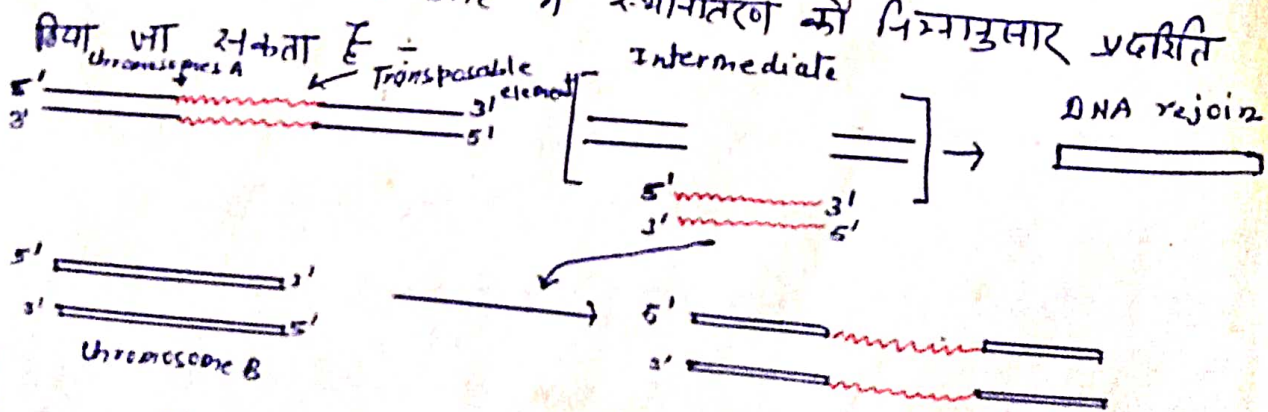 स्थानांतरण को निम्नानुसार प्रदर्शित
किया जा सकता है ÷
Chromosomes A
Transposable
element
Intermediate
DNA rejoin
5' 3'
3' 5'
5' 3'
3' 5'
5' 3'
3' 5'
Chromosome B
5'
3'